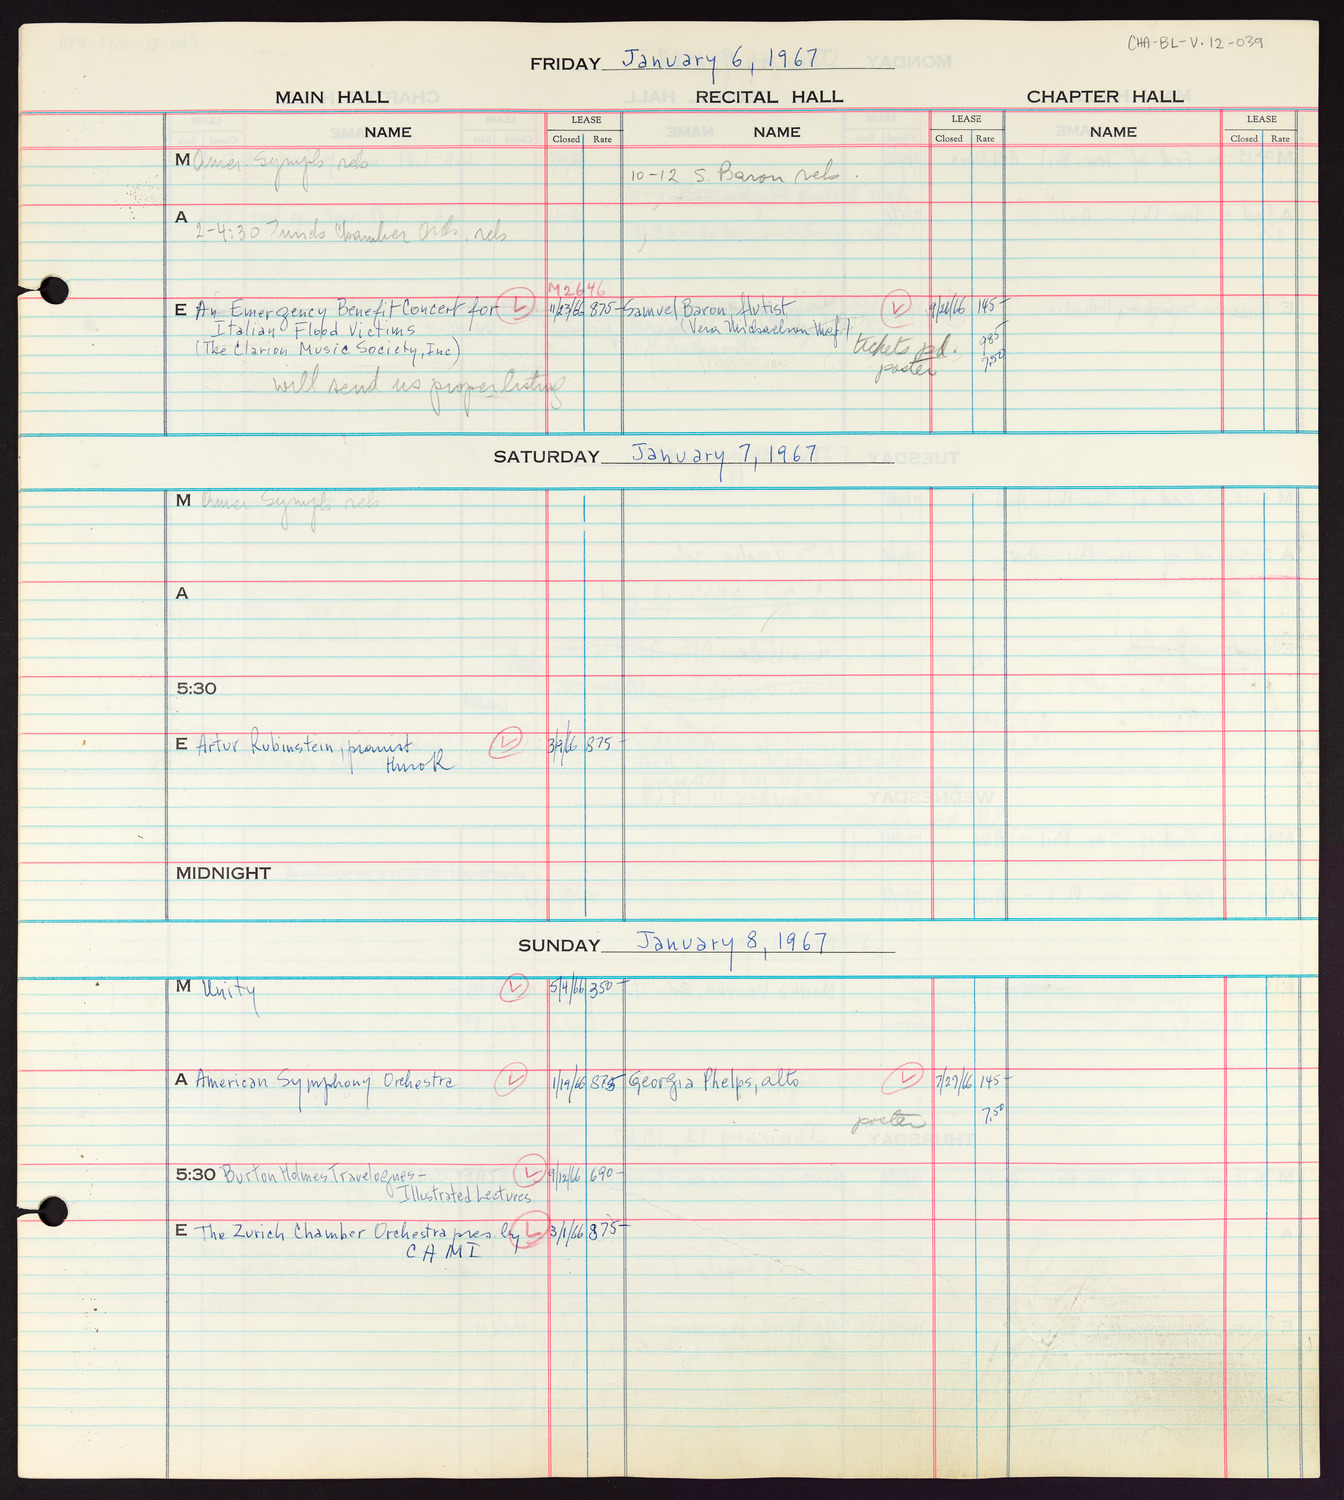 CHA-BL-V.12-039
FRIDAY January 6, 1967
MAIN HALL RECITAL HALL CHAPTER HALL
NAME LEASE Closed Rate NAME LEASE Closed Rate NAME LEASE Closed Rate
M Amer Symph reh
10-12 S Baron reh.
A
2-4:30 Chamber Orch. reh
M2646
E An Emergency Benefit Concert for 11/23/66 875- Samuel Baron flutist 9/26/66 145-
Italian Flood Victims (Vera Michaelson Mgt)
(The Clarion Music Society, Inc) tickets pd. 985
poster 7.50
will send us proper listing
SATURDAY January 7, 1967
M Amer Symph reh
A
5:30
E Artur Rubinstein, pianist 3/9/66 875-
Hurok
MIDNIGHT
SUNDAY January 8, 1967
M Unity 5/4/66 350-
A American Symphony Orchestra 1/19/66 875 Georgia Phelps, alto 7/27/66 145-
poster 7.50
5:30 Burton Holmes Travelogues- 9/12/66 690-
Illustrated Lectures
E The Zurich Chamber Orchestra pres by 3/1/66 875-
CAMI